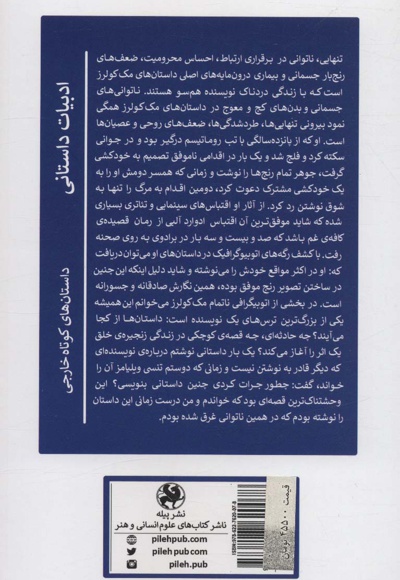 ادبیات داستانی
داستان‌های کوتاه خارجی
تنهایی، ناتوانی در برقراری ارتباط، احساس محرومیت، ضعف‌های
رنج‌بار جسمانی و بیماری درون‌مایه‌های اصلی داستان‌های مک‌کولرز
است که با زندگی دردناک نویسنده هم‌سو هستند. ناتوانی‌های
جسمانی و بدن‌های کج و معوج در داستان‌های مک‌کولرز همگی
نمود بیرونی تنهایی‌ها، طردشدگی‌ها، ضعف‌های روحی و عصیان‌ها
است. او که از پانزده‌سالگی با تب روماتیسم درگیر بود و در جوانی
سکته کرد و فلج شد و یک بار در اقدامی ناموفق تصمیم به خودکشی
گرفت، جوهر تمام رنج‌ها را نوشت و زمانی که همسر دومش او را به
یک خودکشی مشترک دعوت کرد، دومین اقدام به مرگ را تنها به
شوق نوشتن رد کرد. از آثار او اقتباس‌های سینمایی و تئاتری بسیاری
شده که شاید موفق‌ترین آن اقتباس ادوارد آلبی از رمان قصیده‌ی
کافه‌ی غم باشد که صد و بیست و سه بار در برادوی به روی صحنه
رفت. با کشف رگه‌های اتوبیوگرافیک در داستان‌های او می‌توان دریافت
که: او در اکثر مواقع خودش را می‌نوشته و شاید دلیل اینکه این چنین
در ساختن تصویر رنج موفق بوده، همین نگارش صادقانه و جسورانه
است. در بخشی از اتوبیگرافی ناتمام مک‌کولرز می‌خوانم این همیشه
یکی از بزرگ‌ترین ترس‌های یک نویسنده است: داستان‌ها از کجا
می‌آیند؟ چه حادثه‌ای، چه قصه‌ی کوچکی در زندگی زنجیره‌ی خلق
یک اثر را آغاز می‌کند؟ یک بار داستانی نوشتم درباره‌ی نویسنده‌ای
که دیگر قادر به نوشتن نیست و زمانی که دوستم تنسی ویلیامز آن را
خواند، گفت: چطور جرات کردی چنین داستانی بنویسی؟ این
وحشتناک‌ترین قصه‌ای بود که خواندم و من درست زمانی این داستان
را نوشته بودم که در همین ناتوانی غرق شده بودم.
نشر پیله
ناشر کتاب‌های علوم انسانی و هنر
pilehpub.com
pilehpub.com
pileh.pub
ISBN:978-622-7620-97-8
قیمت ۴۵۵۰۰ تومان